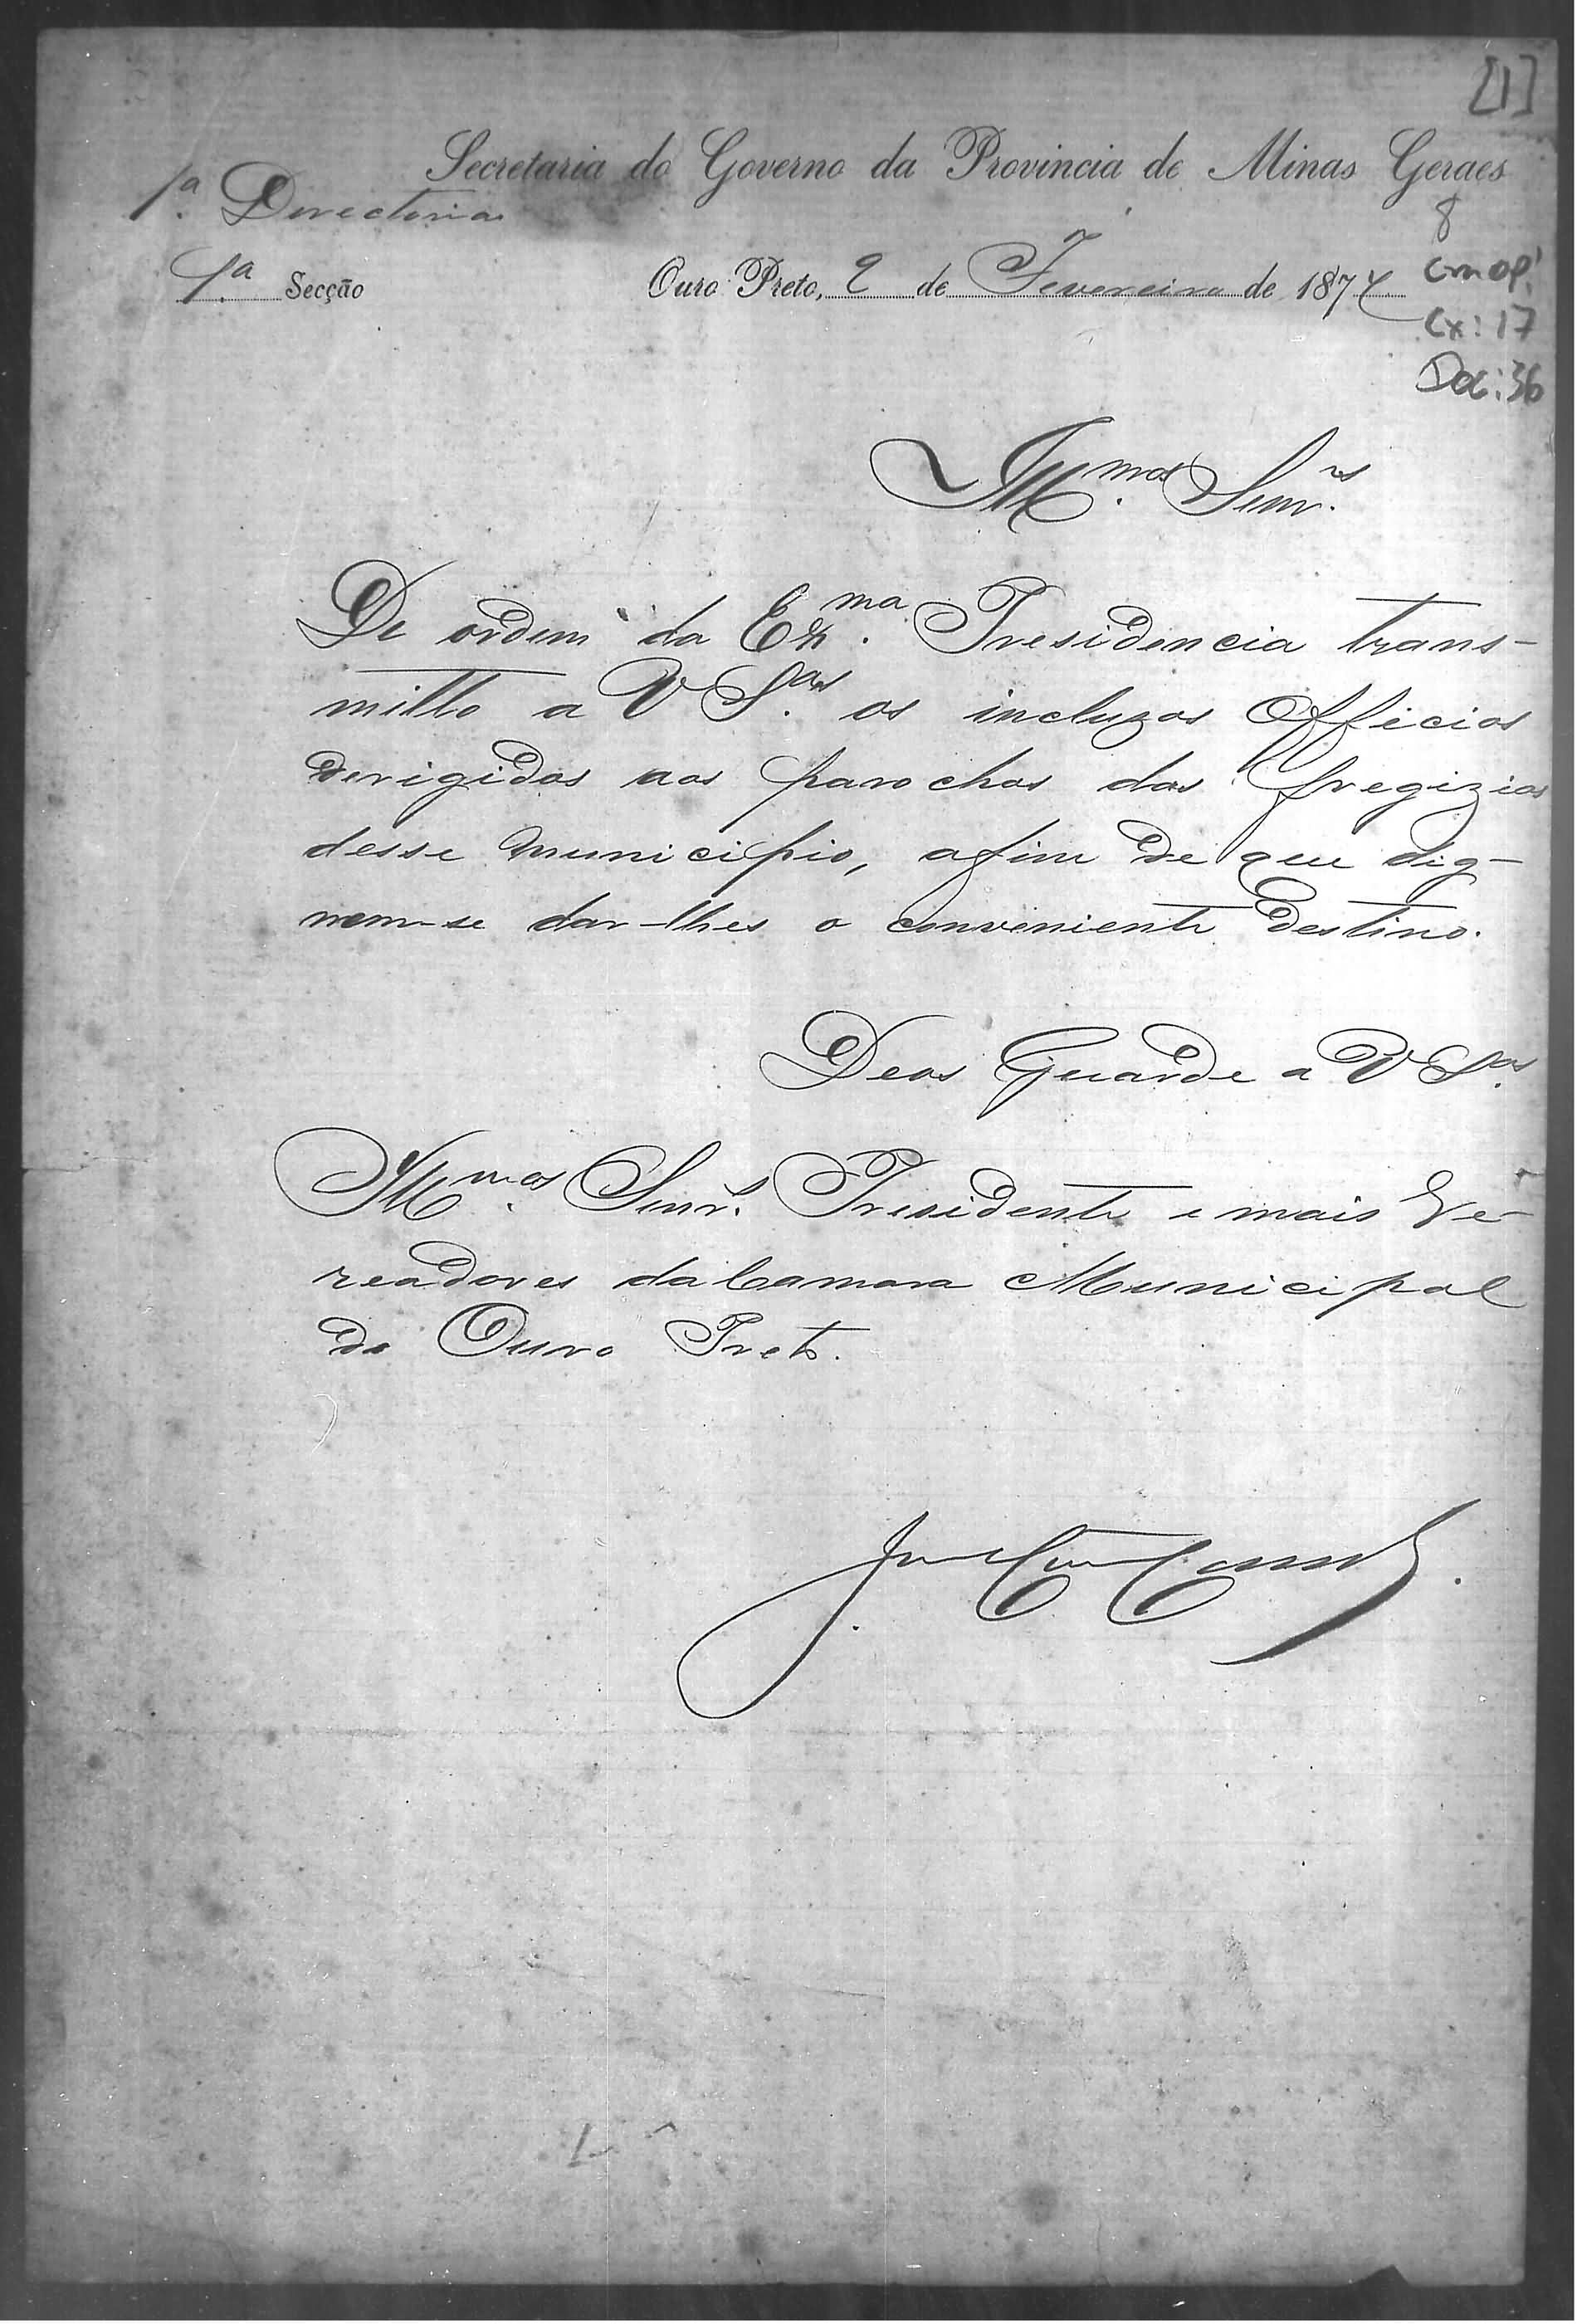 [1]
Secretaria do Governo da Provincia de Minas Geraes
1.ª Directoria
8
1.ª Secção Ouro Preto, 2 de Fevereiro de 1874
cmop!
Cx: 17
Doc: 36
Ill.mos Senr.rs
De ordem da Ex.ma Presidencia trans-
mitto a V S.as os incluzos Officios
derigidos aos parochos das fregizias
desse municipio, afim de que dig-
nem-se dar-lhes o conveniente destino.
Deos Guarde a V S.as
Ill.mos Senr.s Presidente e mais Ve-
readores da Camara Municipal
do Ouro Preto.